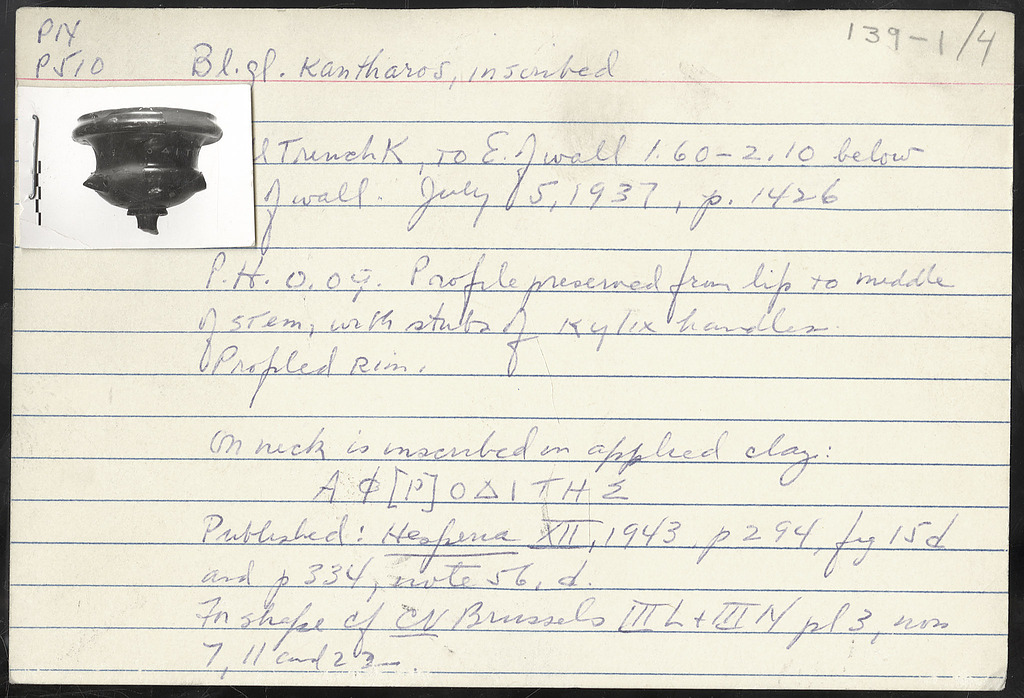 PN
P510
139-1/4
Bl. gl. Kantharos, inscribed
Trench K, to E. of wall 1.60-2.10 below
of wall. July 5, 1937, p. 1426
P.H. 0.09. Profile preserved from lip to middle
of stem, with stubs of Kylix handles.
Profiled rim.
On neck is inscribed in applied clay:
Α Φ [Ρ] Ο Δ Ι Τ Η Σ
Published: Hesperia XII, 1943, p 294, fig 15d
and p 334, note 56, d.
For shape cf CV Brussels III L + III N pl 3, nos
7, 11 and 23